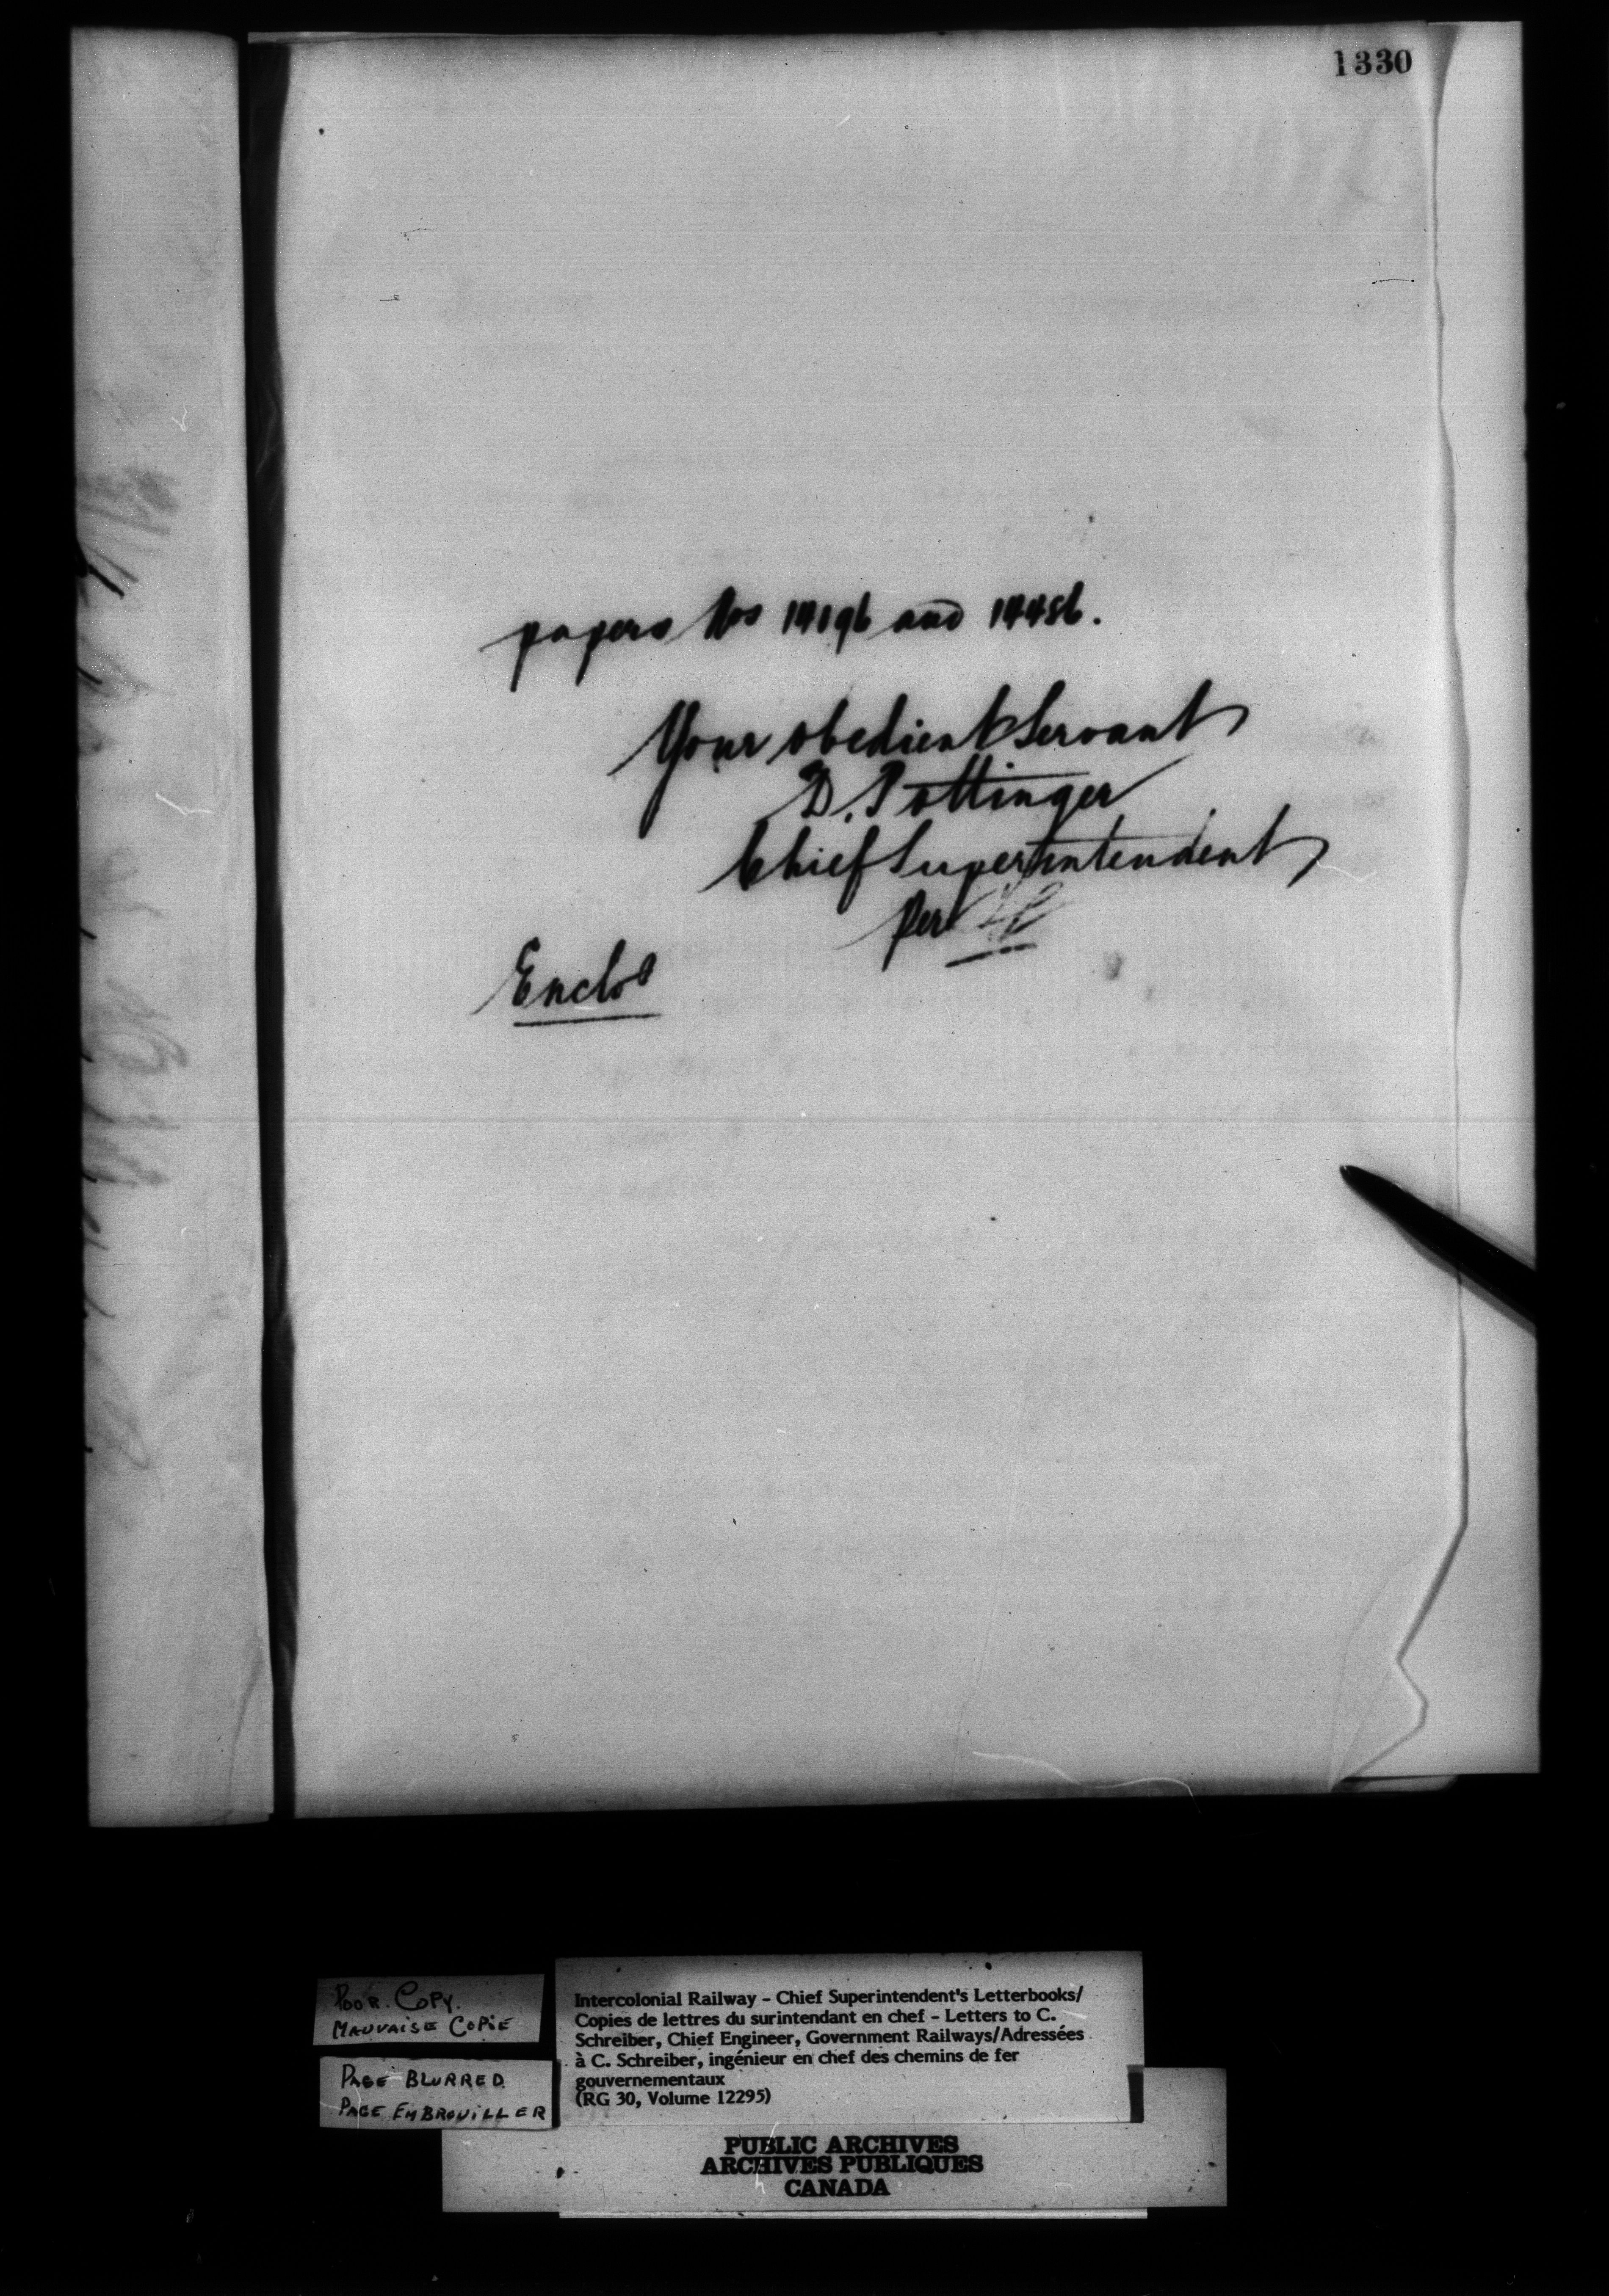 1330
papers Nos 14196 and 14486.
Your obedient Servant
D. Pottinger
Chief Superintendent
Per
Enclos
POOR COPY.
MAUVAISE COPIE
PAGE BLURRED
PAGE EMBROUILLER
Intercolonial Railway – Chief Superintendent's Letterbooks/
Copies de lettres du surintendant en chef – Letters to C.
Schreiber, Chief Engineer, Government Railways/Adressées
à C. Schreiber, ingénieur en chef des chemins de fer
gouvernementaux
(RG 30, Volume 12295)
PUBLIC ARCHIVES
ARCHIVES PUBLIQUES
CANADA